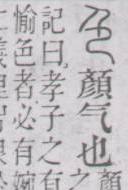 色顏气也顏
之
記曰孝子之有
愉色者必有婉